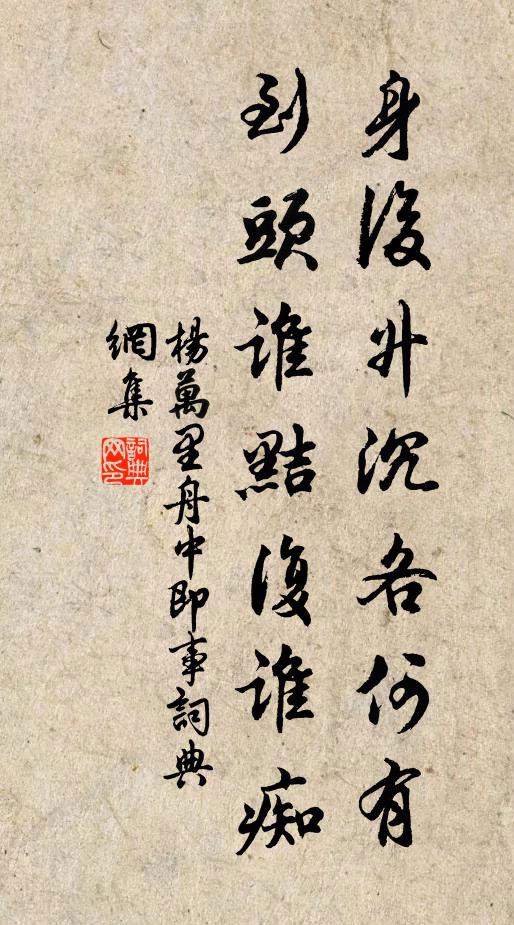 身後升沉各何有
到頭誰黠復誰痴
楊萬里舟中即事詞典
網集
詞典網印